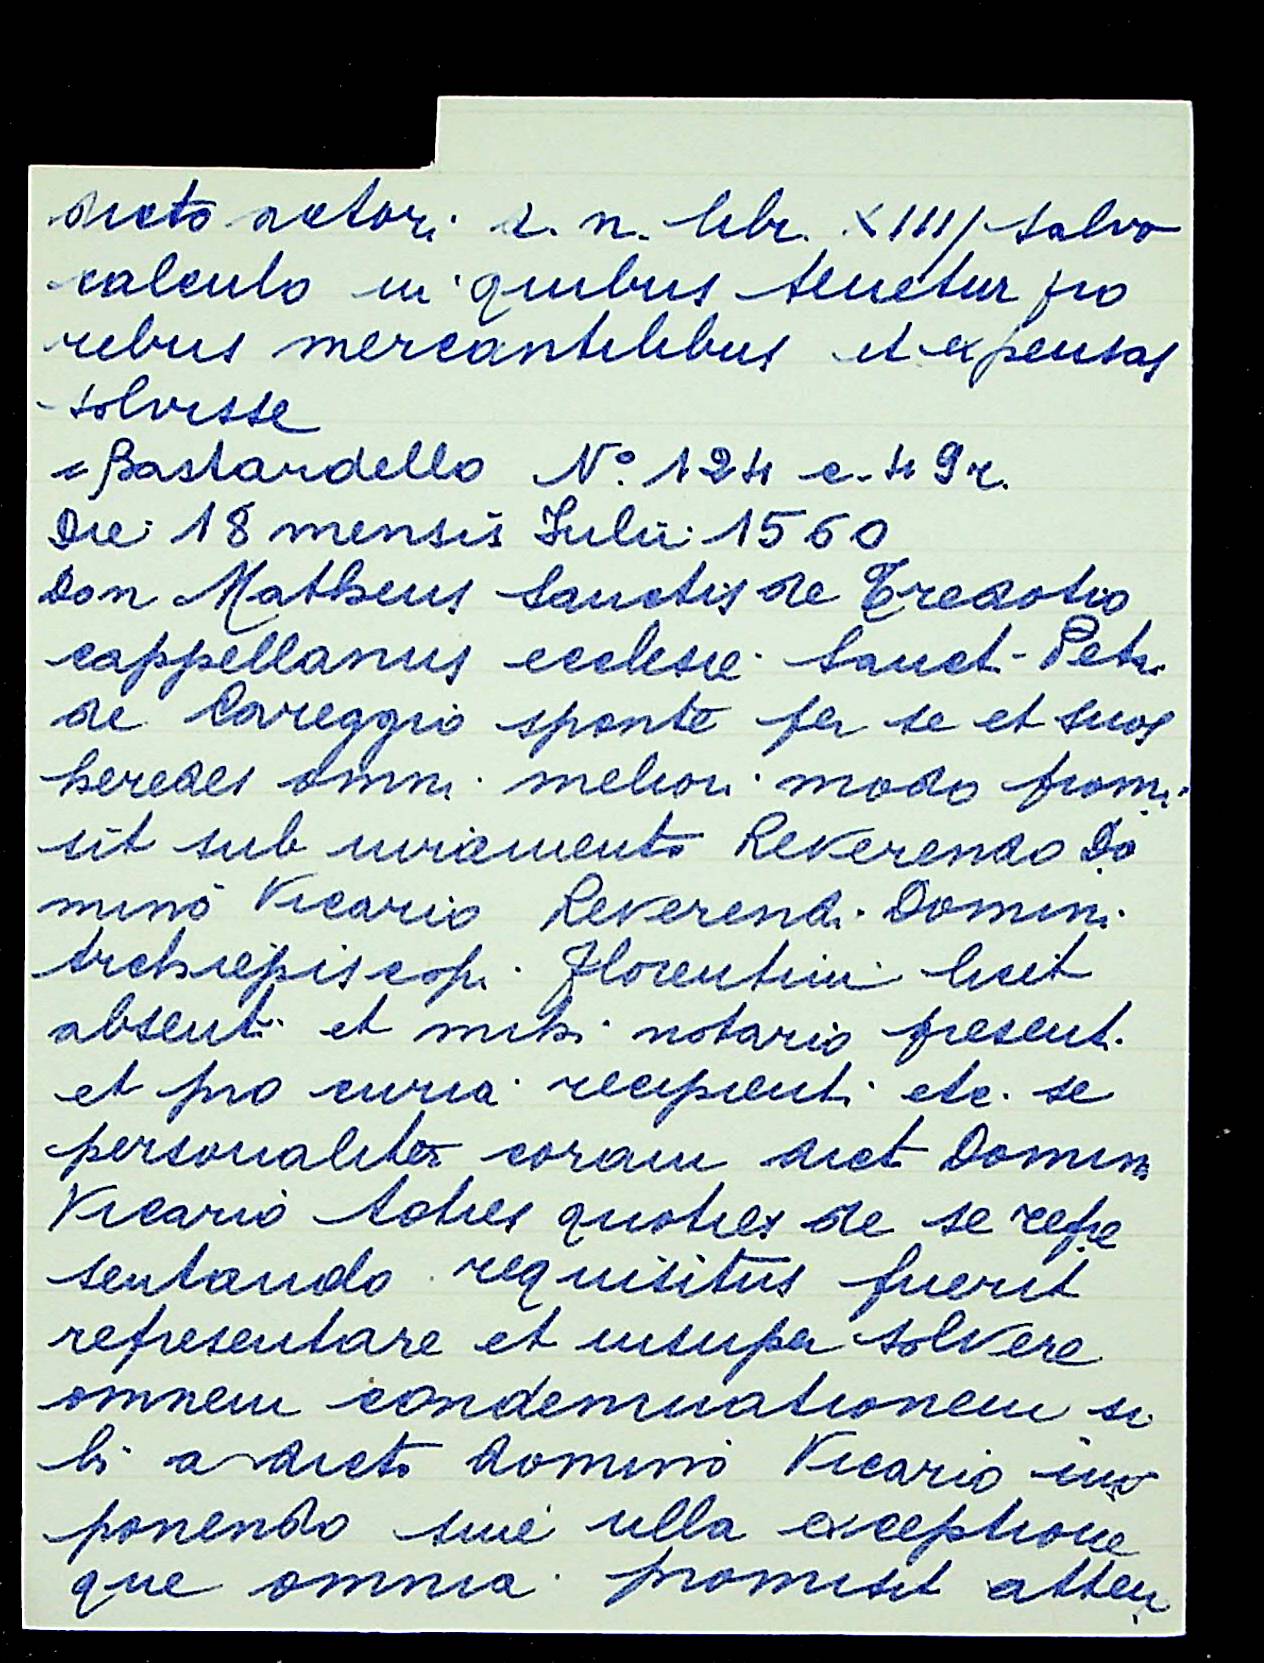 dicto actori s. n. libr. XIII/ salvo
calculo in quibus tenetur pro
rebus mercantilibus et expensas
solvisse
= Bastardello N° 124 c. 49r.
Die 18 mensis Iulii 1560
Don Matheus Sanctis de Tredotio
cappellanus ecclesie Sanct. Petri
de Careggio sponte per se et suos
heredes omni meliori modo promi
sit sub iuramento Reverendo Do
mino Vicario Reverendi Domini
Archiepiscopi Florentini licet
absenti et mihi notario presenti
et pro curia recipienti etc. se
personaliter coram dict Domino
Vicario toties quoties de se repre
sentando requisitus fuerit
representare et insuper solvere
omnem condemnationem si
bi a dicto domino Vicario im
ponendo sine ulla exceptione
que omnia promisit atten